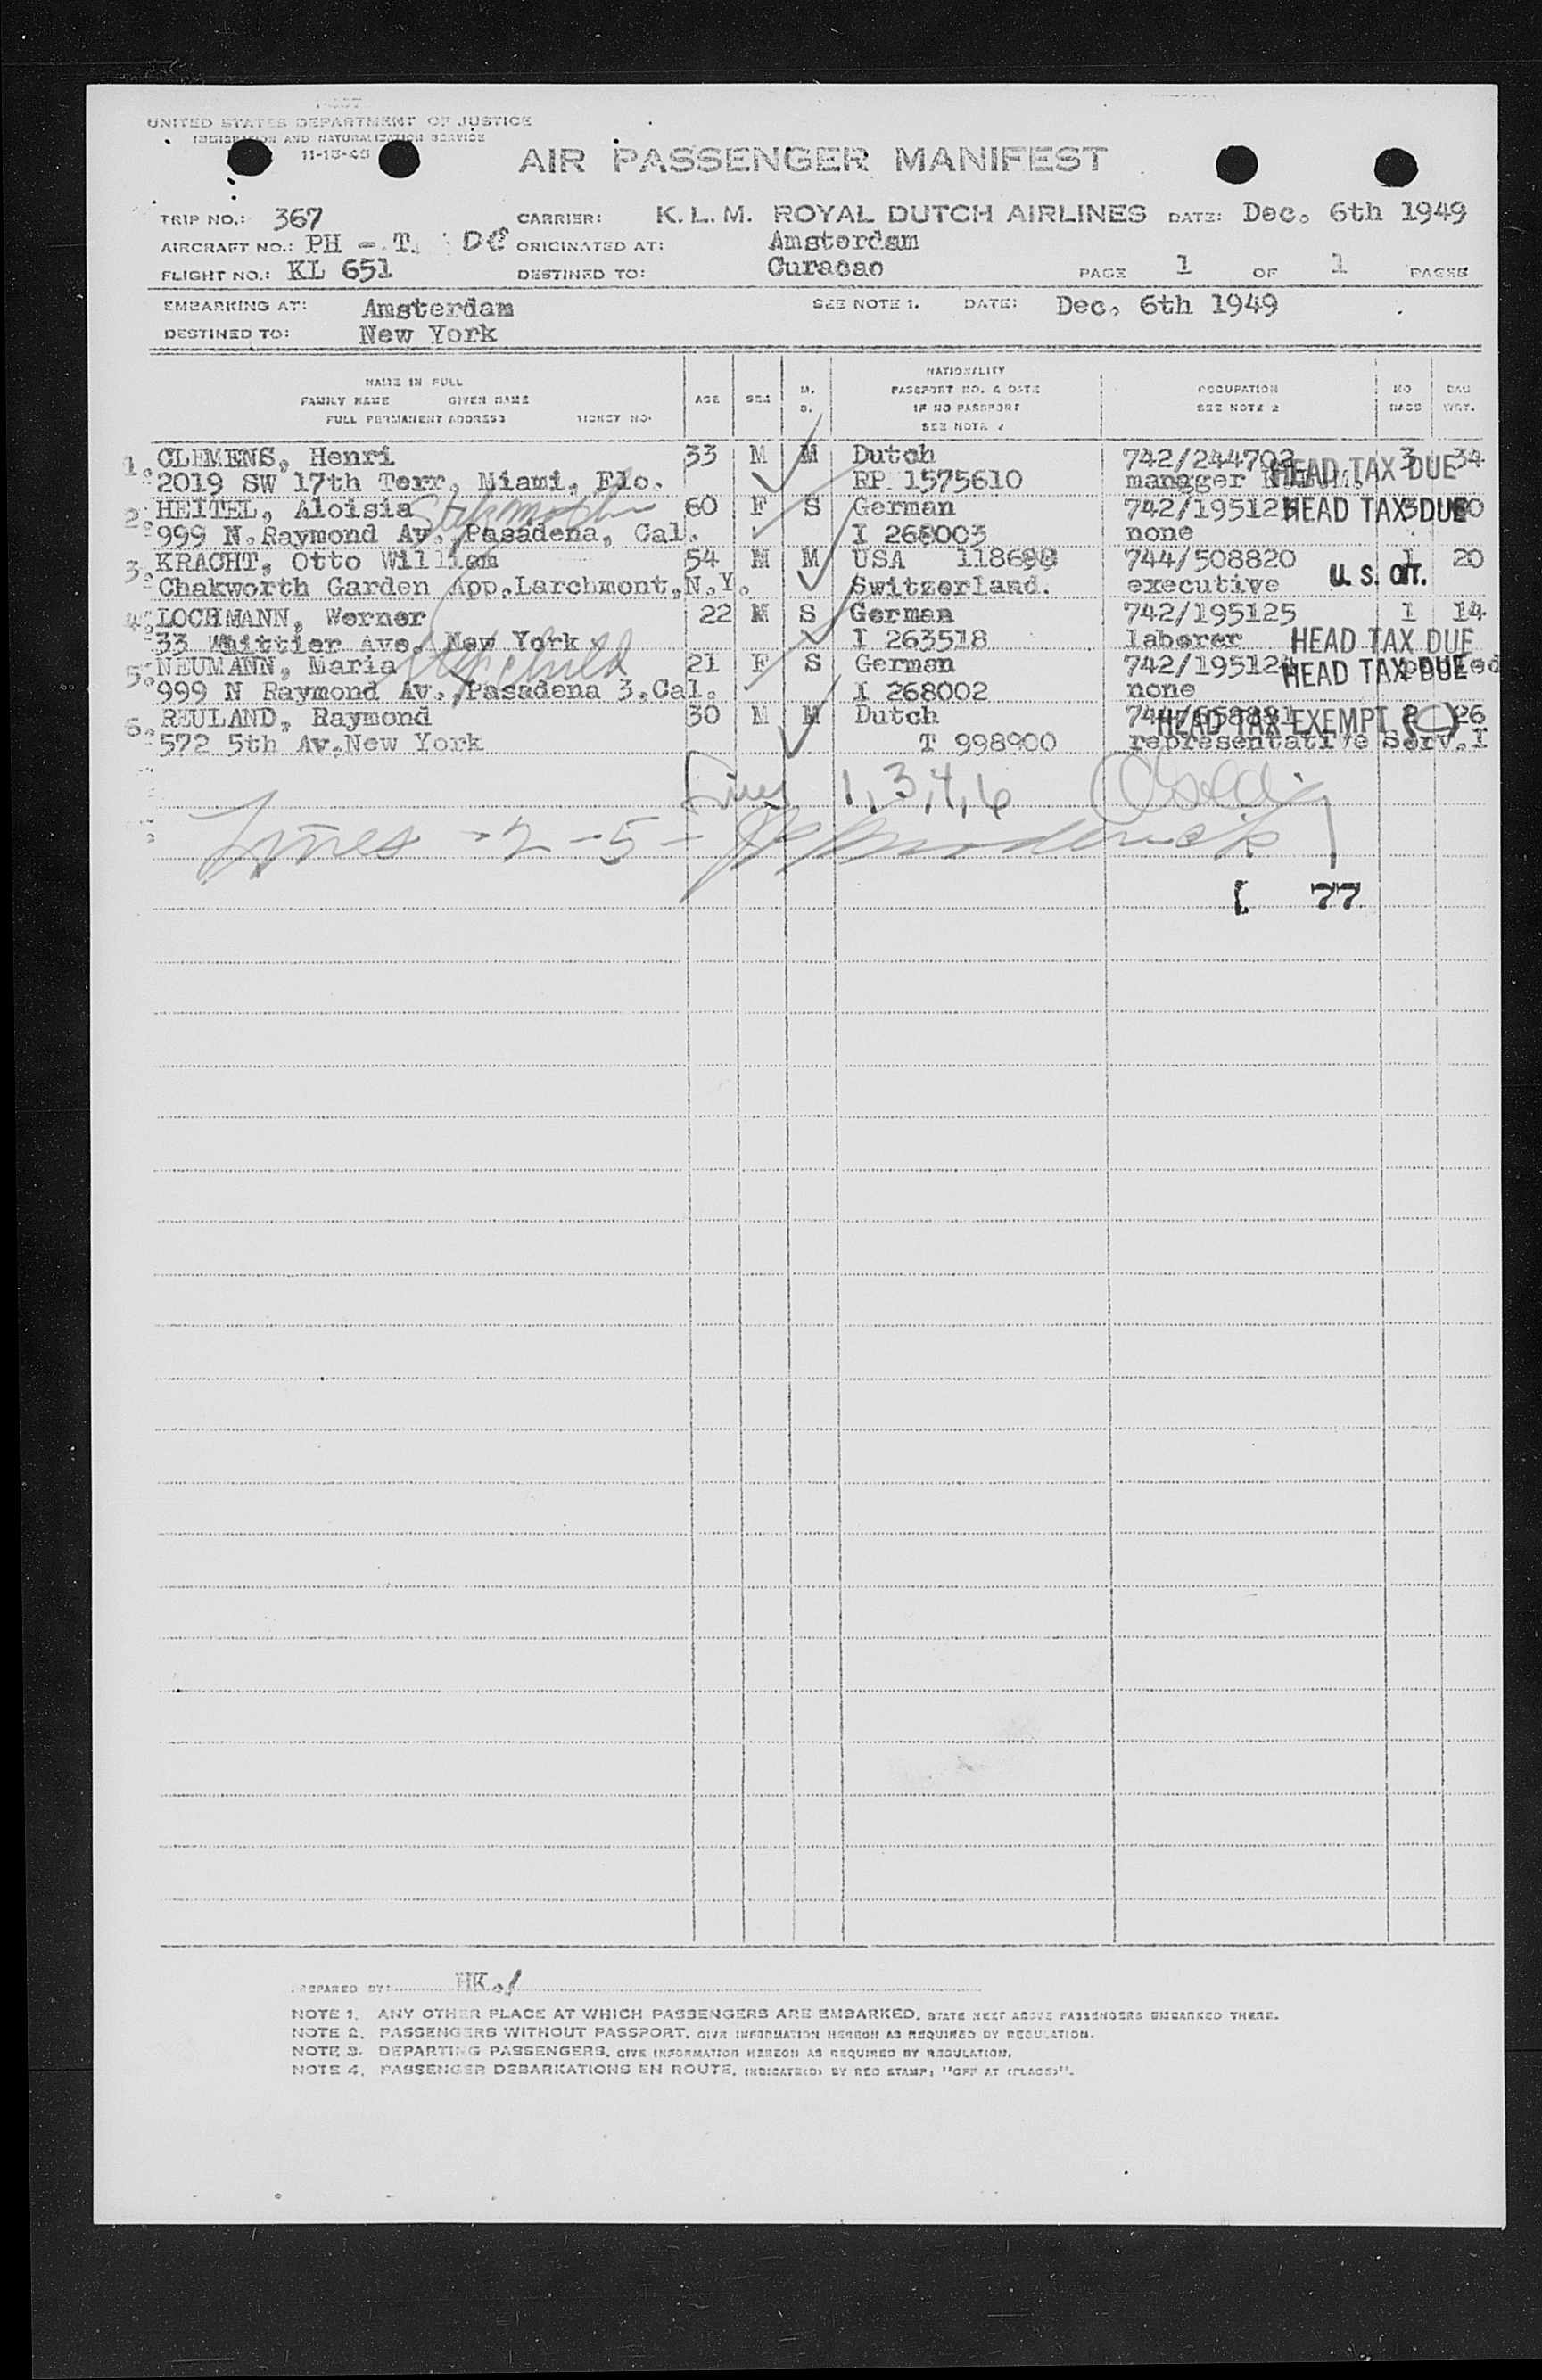 UNITED STATES DEPARTMENT OF JUSTICE
IMMIGRATION AND NATURALIZATION SERVICE
AIR PASSENGER MANIFEST
TRIP NO.: 367 CARRIER: K.L.M. ROYAL DUTCH AIRLINES DATE: Dec. 6th 1949
AIRCRAFT NO.: PH - T. ORIGINATED AT: Amsterdam
FLIGHT NO.: KL 651 DESTINED TO: Curacao PAGE 1 OF 1 PAGES
EMBARKING AT: Amsterdam SEE NOTE 1. DATE: Dec. 6th 1949
DESTINED TO: New York
NAME IN FULL
FAMILY NAME GIVEN NAME
FULL PERMANENT ADDRESS TICKET NO.
AGE SEX M. S.
NATIONALITY
PASSPORT NO. & DATE
IF NO PASSPORT
SEE NOTE 2
OCCUPATION
SEE NOTE 2
NO BAGS BAG WGT.
1. CLEMENS, Henri 33 M M Dutch 742/244702 3 34
2019 SW 17th Terr, Miami, Flo. RP 1575610 manager HEAD TAX DUE
2. HEITEL, Aloisia Stepmother 60 F S German HEAD TAX DUE
999 N.Raymond Av., Pasadena, Cal. I 268003 none
3. KRACHT, Otto William 54 M M USA 744/508820 1 20
Chakworth Garden App.Larchmont.N.Y. Switzerland. executive U.S. CIT.
4. LOCHMANN, Werner 22 M S German 742/195125 1 14
33 Whittier Ave. New York I 263518 laborer HEAD TAX DUE
5. NEUMANN, Maria Stepchild 21 F S German HEAD TAX DUE pooled
999 N Raymond Av., Pasadena 3.Cal. I 268002 none
6. REULAND, Raymond 30 M M Dutch HEAD TAX EXEMPT (C) 2 26
572 5th Av.New York T 998900 representative Serv.I
Lines 1, 3, 4, 6
Lines - 2 - 5 -
77
PREPARED BY: HK./
NOTE 1. ANY OTHER PLACE AT WHICH PASSENGERS ARE EMBARKED, STATE NEXT ABOVE PASSENGERS EMBARKED THERE.
NOTE 2. PASSENGERS WITHOUT PASSPORT, GIVE INFORMATION HEREON AS REQUIRED BY REGULATION.
NOTE 3. DEPARTING PASSENGERS, GIVE INFORMATION HEREON AS REQUIRED BY REGULATION.
NOTE 4. PASSENGER DEBARKATIONS EN ROUTE, INDICATE(D) BY RED STAMP: "OFF AT (PLACE)".